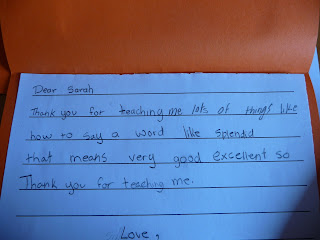 Dear Sarah
Thank you for teaching me lots of things like
how to say a word like splendid
that means very good excellent so
Thank you for teaching me.
Love,